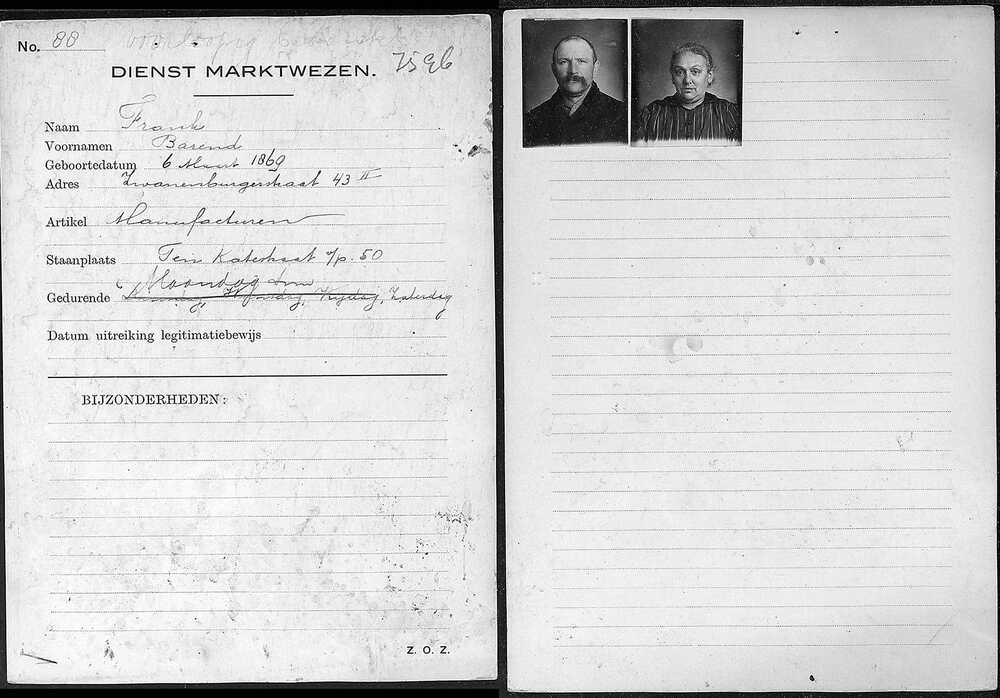 No. 88 voorloopig
7596
DIENST MARKTWEZEN.
Naam Frank
Voornamen Barend
Geboortedatum 6 Maart 1869
Adres Zwanenburgerstraat 43 II
Artikel Manufacturen
Staanplaats Ten Katestraat v/p. 50
Maandag t/m
Gedurende Dinsdag, Vrijdag, Zaterdag
Datum uitreiking legitimatiebewijs
BIJZONDERHEDEN:
Z. O. Z.